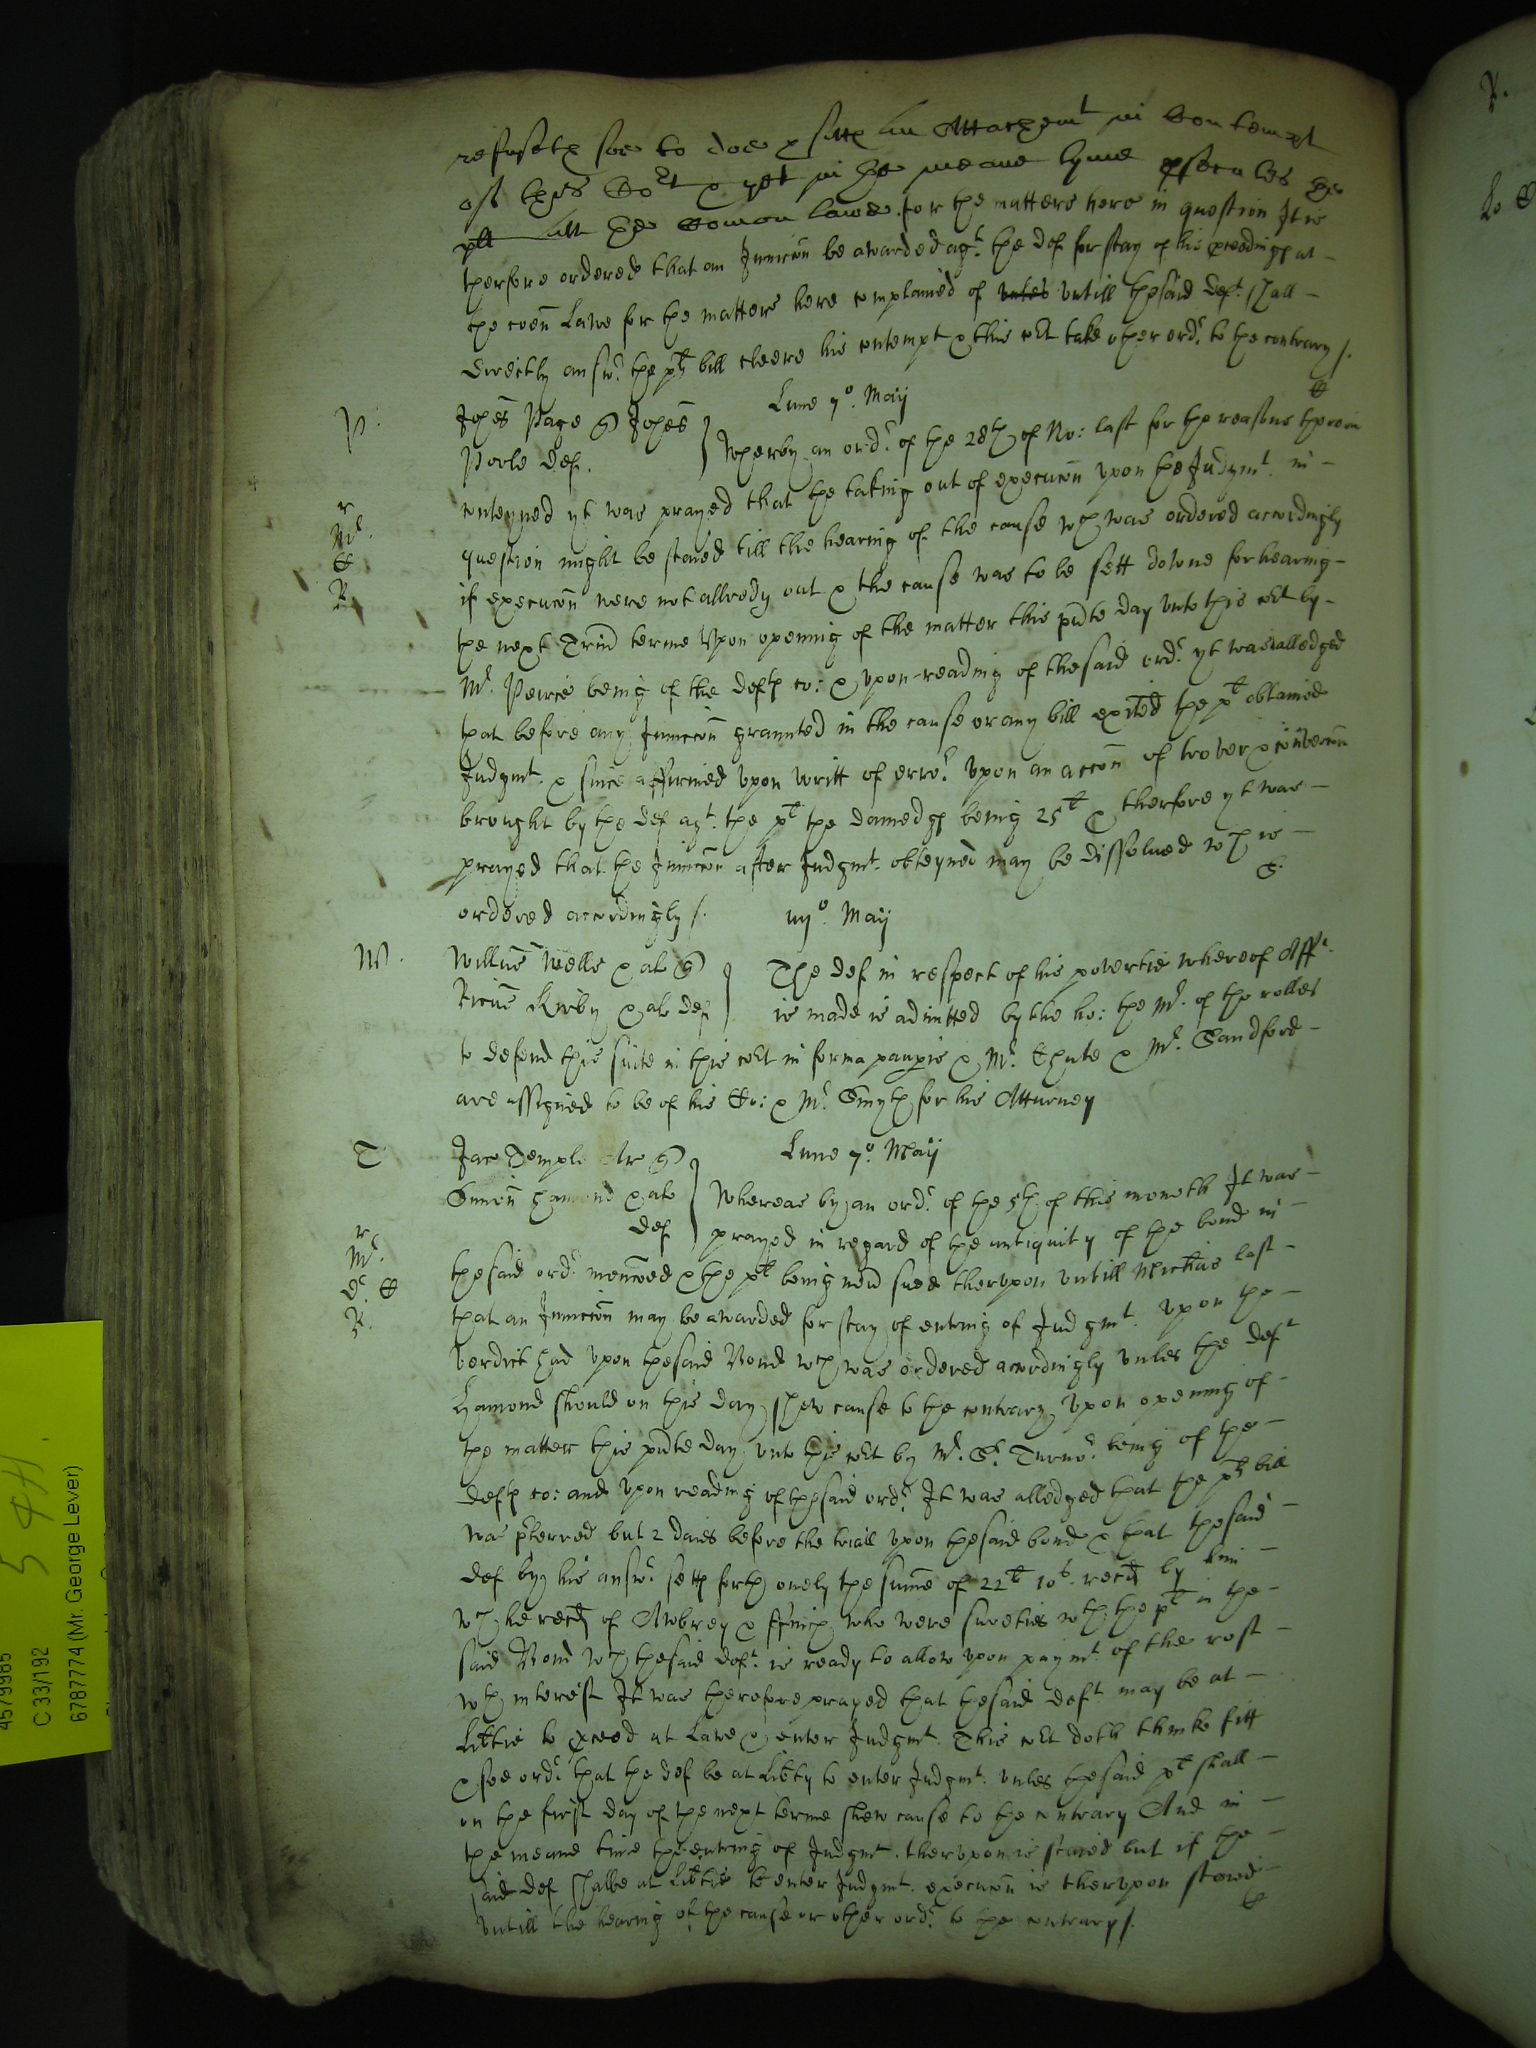 refuseth soe to doe & sitts in Attachemt in Contempt
of this Cort & yet in the meane tyme psecutes the
plt att the Comon Lawe for the matters here in question It is
therfore ordered that an Iniuccon be awarded agt the def for stay of his proceedings at
the comon Lawe for the matters here complained of untill the said deft shall
directly answr the plts bill cleere his contempt & this cort take other ordr to the contrary /.
Lune 7o. Maij
P. Johes Page q Johes
Poole def.
Wherby an ordr of the 28th of No: last for the reasons therein
r
Mr.
R.
conteyned yt was prayed that the taking out of execucon upon the Iudgmt in
question might be staied till the hearing of the cause wch was ordered accordingly
if execucon were not allredy out & the cause was to be sett downe for hearing
the next Trin terme Upon opening of the matter this pnte day unto this cort by
Mr. Peirce being of the defts co: & upon reading of the said ordr yt was alledged
that before any Iniuccon graunted in the cause or any bill exited the plt obtained
Iudgmt & since affirmed upon writt of error upon an accon of trover & conversion
brought by the def agt the plt the damedgs being 25l & therfore yt was
prayed that the Iniuccon after Iudgmt obteyned may be dissolued wch is
ordered accordingly /.
iiijo. Maij
W. Willus Wells & al q
Ricus Kirby & als def
The def in respect of his povertie whereof Afft.
is made is admitted by the ho: the Mr. of the rolles
to defend this suite in this cort in forma paupis & Mr. Chute & Mr. Sandford
are assigned to be of his Co: & Mr. Smyth for his Atturney
T. Jaco Temple Ar q
Simon Hamond & als
def
Lune 7o. Maij
Whereas by an ordr of the 5th of this moneth It was
prayed in regard of the antiquity of the bond in
r
Mr.
R.
the said ordr menconed & the plt being never sued therupon untill Michas last
that an Iniuccon may be awarded for stay of entring of Iudgmt upon the
verdict had upon the said Bond wch was ordered accordingly unles the deft
Hamond should on this day shew cause to the contrary upon opening of
the matter this pnte day unto this cort by Mr. Sr. Turnor being of the
defts co: and upon reading of the said ordr It was alledged that the plts bill
was pferred but 2 daies before the triall upon the said bond & that the said
def by his answr setts forth onely the summe of 22l 10s. recd by him
wch he recd of Awbrey & ffinch who were sureties wth the plt in the
said Bond wch the said deft is ready to allow upon paymt of the rest
wth interest It was therefore prayed that the said deft may be at
libtie to proceed at Lawe & enter Iudgmt. This cort doth thinke fitt
& soe ordr that the def be at libty to enter Iudgmt unles the said plt shall
on the first day of the next terme shew cause to the contrary And in
the meane time the entring of Iudgmt therupon is staied but if the
said def shalbe at libtie to enter Iudgmt. execucon is therupon staied
untill the hearing of the cause or other ordr to the contrary /.
5 4H.
4579985
C 33/192
6787774 (Mr. George Lever)